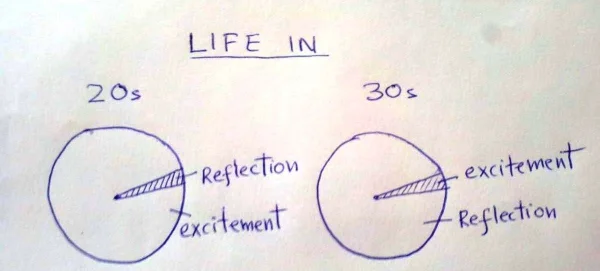 LIFE IN
20s
Reflection
excitement
30s
excitement
Reflection